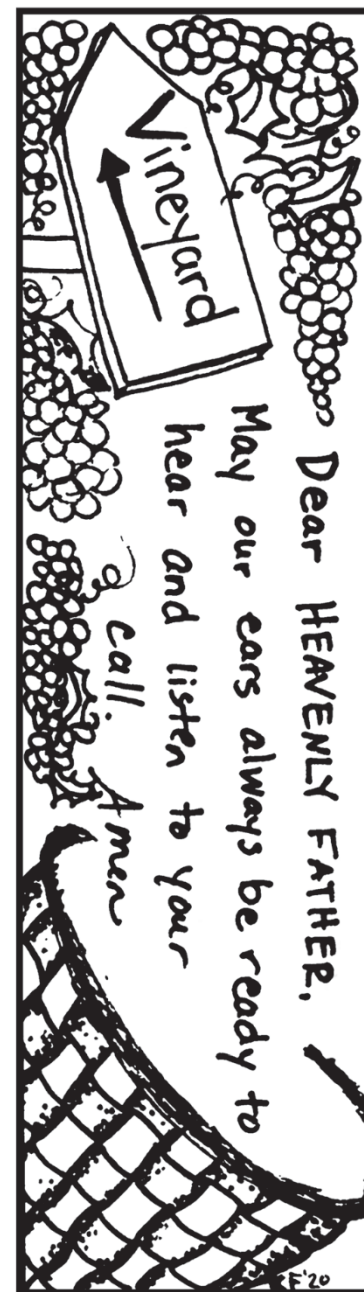 Vineyard
Dear HEAVENLY FATHER,
May our ears always be ready to
hear and listen to your
call. Amen
F'20